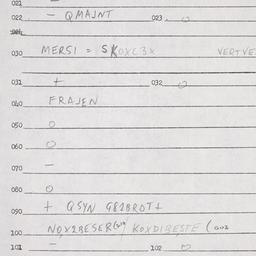 021 –
022 – QMAJNT 023. O
030 MERSI = SKOXC3X VERTVE
031 + 032 O
040 FRAJEN
050 O
060 O
070 –
080 O
090 + QSYN
100 NQX2BESER KOXDIBESTE (
101 – 102 O